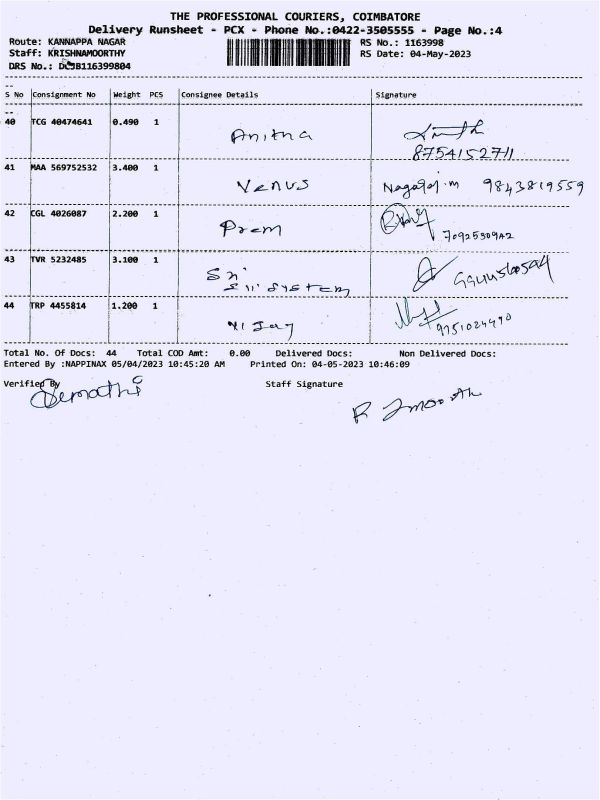 THE PROFESSIONAL COURIERS, COIMBATORE
Delivery Runsheet - PCX - Phone No.:0422-3505555 - Page No.:4
Route: KANNAPPA NAGAR RS No.: 1163998
Staff: KRISHNAMOORTHY RS Date: 04-May-2023
DRS No.: 116399804
S No Consignment No Weight PCS Consignee Details Signature
40 TCG 40474641 0.490 1 Anitha
8754152711
41 MAA 569752532 3.400 1 Venus Nagaraj.m 9843819559
42 CGL 4026087 2.200 1 Prem
43 TVR 5232485 3.100 1 Sri
System
44 TRP 4455814 1.200 1 Vijay
9751024490
Total No. Of Docs: 44 Total COD Amt: 0.00 Delivered Docs: Non Delivered Docs:
Entered By :NAPPINAX 05/04/2023 10:45:20 AM Printed On: 04-05-2023 10:46:09
Verified By Staff Signature